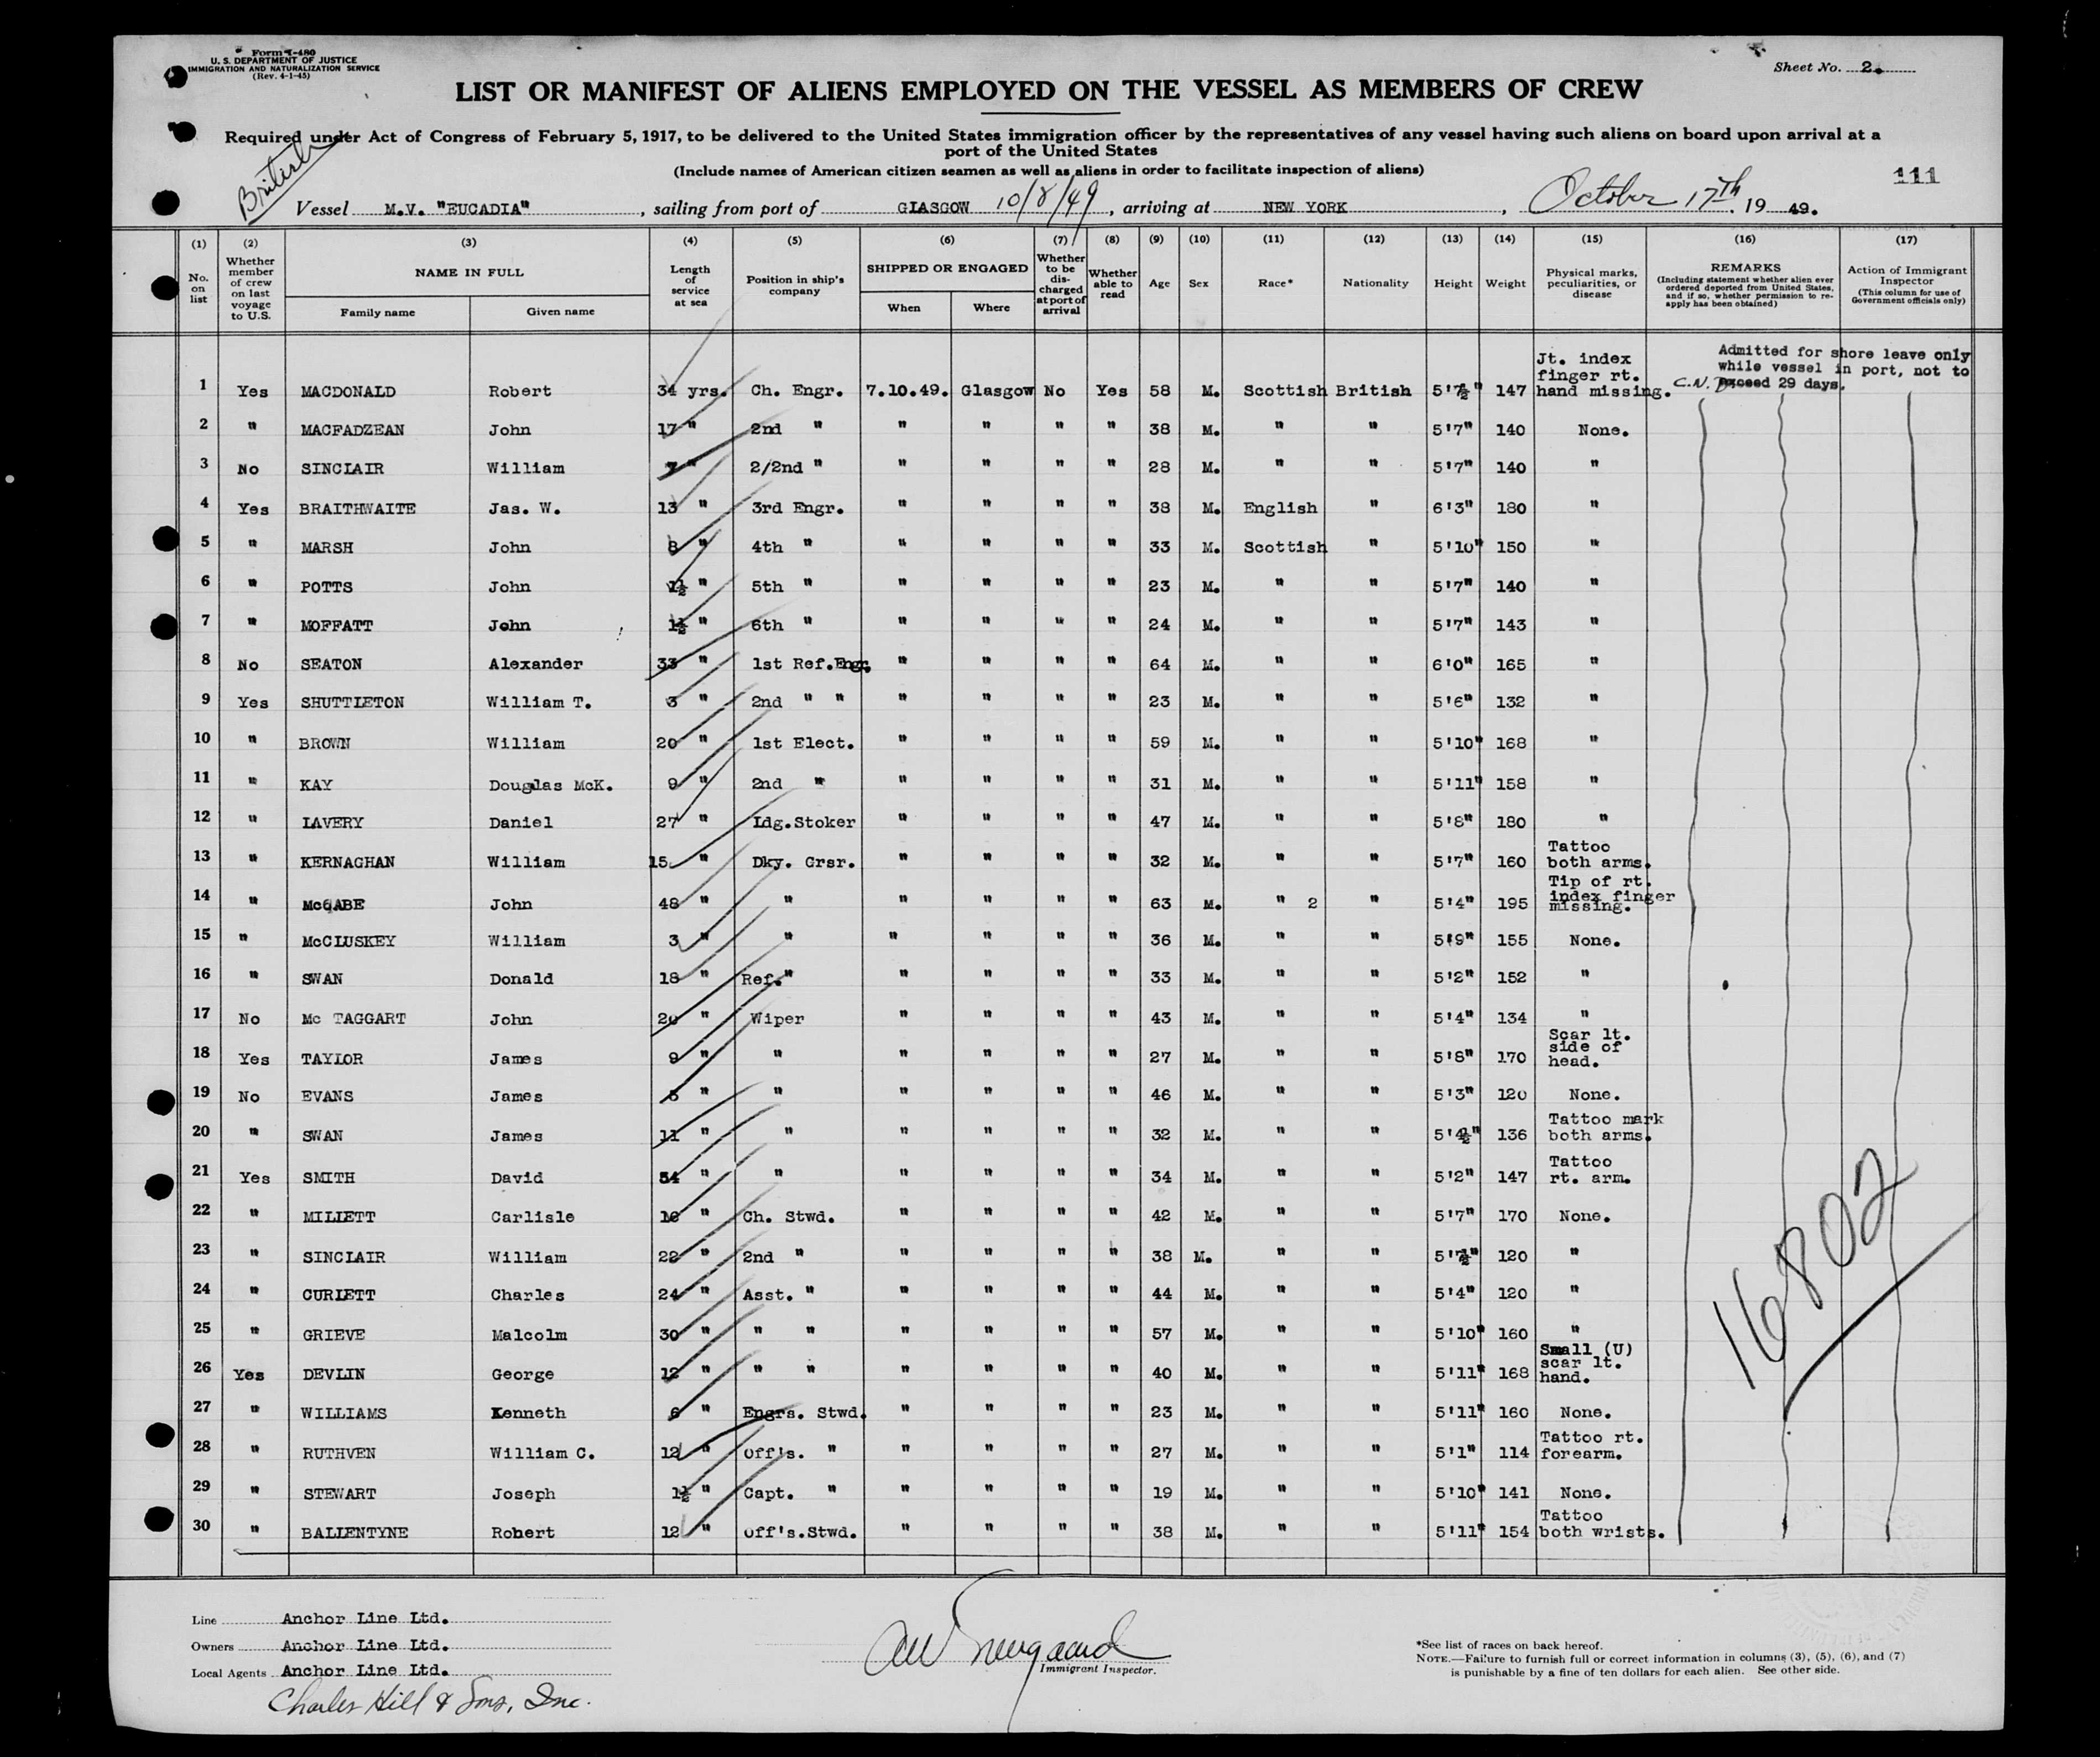 Form I-480
U. S. DEPARTMENT OF JUSTICE
IMMIGRATION AND NATURALIZATION SERVICE
(Rev. 4-1-45)
Sheet No. 2.
LIST OR MANIFEST OF ALIENS EMPLOYED ON THE VESSEL AS MEMBERS OF CREW
Required under Act of Congress of February 5, 1917, to be delivered to the United States immigration officer by the representatives of any vessel having such aliens on board upon arrival at a
port of the United States
(Include names of American citizen seamen as well as aliens in order to facilitate inspection of aliens)
111
British
Vessel M.V. "EUCADIA", sailing from port of GLASGOW 10/8/49, arriving at NEW YORK, October 17th, 19 49.
(1) (2) (3) (4) (5) (6) (7) (8) (9) (10) (11) (12) (13) (14) (15) (16) (17)
No. on list
Whether member of crew on last voyage to U.S.
NAME IN FULL
Family name Given name
Length of service at sea
Position in ship's company
SHIPPED OR ENGAGED
When Where
Whether to be discharged at port of arrival
Whether able to read
Age
Sex
Race*
Nationality
Height
Weight
Physical marks, peculiarities, or disease
REMARKS
(Including statement whether alien ever ordered deported from United States, and if so, whether permission to re-apply has been obtained)
Action of Immigrant Inspector
(This column for use of Government officials only)
Admitted for shore leave only
while vessel in port, not to
exceed 29 days.
1 Yes MACDONALD Robert 34 yrs. Ch. Engr. 7.10.49. Glasgow No Yes 58 M. Scottish British 5'7½" 147 Jt. index finger rt. hand missing.
2 " MACFADZEAN John 17 " 2nd " " " " " 38 M. " " 5'7" 140 None.
3 No SINCLAIR William 7 " 2/2nd " " " " " 28 M. " " 5'7" 140 "
4 Yes BRAITHWAITE Jas. W. 13 " 3rd Engr. " " " " 38 M. English " 6'3" 180 "
5 " MARSH John 8 " 4th " " " " " 33 M. Scottish " 5'10" 150 "
6 " POTTS John 1½ " 5th " " " " " 23 M. " " 5'7" 140 "
7 " MOFFATT John 1½ " 6th " " " " " 24 M. " " 5'7" 143 "
8 No SEATON Alexander 33 " 1st Ref.Engr. " " " " 64 M. " " 6'0" 165 "
9 Yes SHUTTLETON William T. 3 " 2nd " " " " " " 23 M. " " 5'6" 132 "
10 " BROWN William 20 " 1st Elect. " " " " 59 M. " " 5'10" 168 "
11 " KAY Douglas McK. 9 " 2nd " " " " " 31 M. " " 5'11" 158 "
12 " LAVERY Daniel 27 " Ldg.Stoker " " " " 47 M. " " 5'8" 180 "
13 " KERNAGHAN William 15 " Dky. Grsr. " " " " 32 M. " " 5'7" 160 Tattoo both arms.
14 " McCABE John 48 " " " " " " 63 M. " 2 " 5'4" 195 Tip of rt. index finger missing.
15 " McCLUSKEY William 3 " " " " " " 36 M. " " 5'9" 155 None.
16 " SWAN Donald 18 " Ref." " " " " 33 M. " " 5'2" 152 "
17 No Mc TAGGART John 20 " Wiper " " " " 43 M. " " 5'4" 134 "
18 Yes TAYLOR James 9 " " " " " " 27 M. " " 5'8" 170 Scar lt. side of head.
19 No EVANS James " " " " " " 46 M. " " 5'3" 120 None.
20 " SWAN James 11 " " " " " " 32 M. " " 5'4½" 136 Tattoo mark both arms.
21 Yes SMITH David " " " " " " 34 M. " " 5'2" 147 Tattoo rt. arm.
22 " MILLETT Carlisle 16 " Ch. Stwd. " " " " 42 M. " " 5'7" 170 None.
23 " SINCLAIR William 22 " 2nd " " " " " 38 M. " " 5'7½" 120 "
24 " CURLETT Charles 24 " Asst. " " " " " 44 M. " " 5'4" 120 "
25 " GRIEVE Malcolm 30 " " " " " " " 57 M. " " 5'10" 160 "
26 Yes DEVLIN George 12 " " " " " " " 40 M. " " 5'11" 168 Small (U) scar lt. hand.
27 " WILLIAMS Kenneth 6 " Engrs. Stwd. " " " " 23 M. " " 5'11" 160 None.
28 " RUTHVEN William C. 12 " Off's. " " " " " 27 M. " " 5'1" 114 Tattoo rt. forearm.
29 " STEWART Joseph 1½ " Capt. " " " " " 19 M. " " 5'10" 141 None.
30 " BALLENTYNE Robert 12 " Off's.Stwd. " " " " 38 M. " " 5'11" 154 Tattoo both wrists.
16802
Line Anchor Line Ltd.
Owners Anchor Line Ltd.
Local Agents Anchor Line Ltd.
Charles Hill & Sons, Inc.
Immigrant Inspector.
*See list of races on back hereof.
NOTE.—Failure to furnish full or correct information in columns (3), (5), (6), and (7)
is punishable by a fine of ten dollars for each alien. See other side.